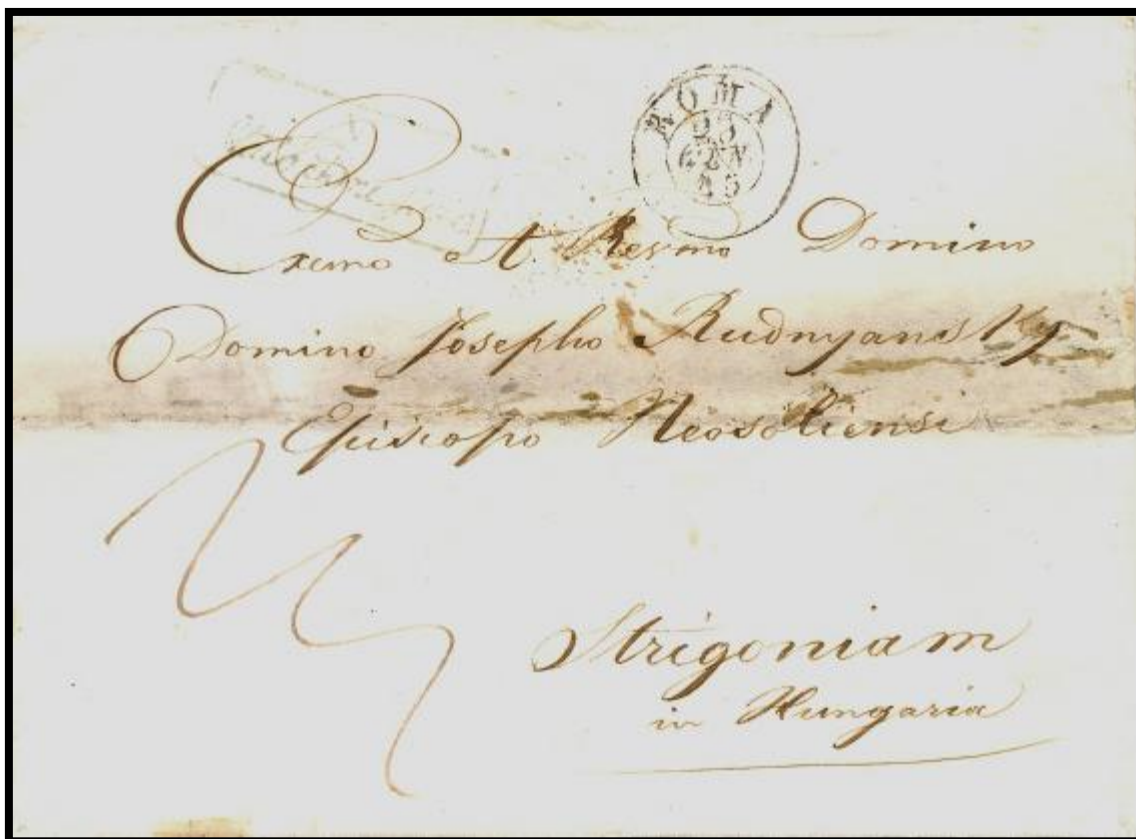 ROMA
23
GEN
45
Exmo et Resmo Domino
Domino Josepho Rudnyansky
Episcopo Neosoliensi
Strigoniam
in Hungaria